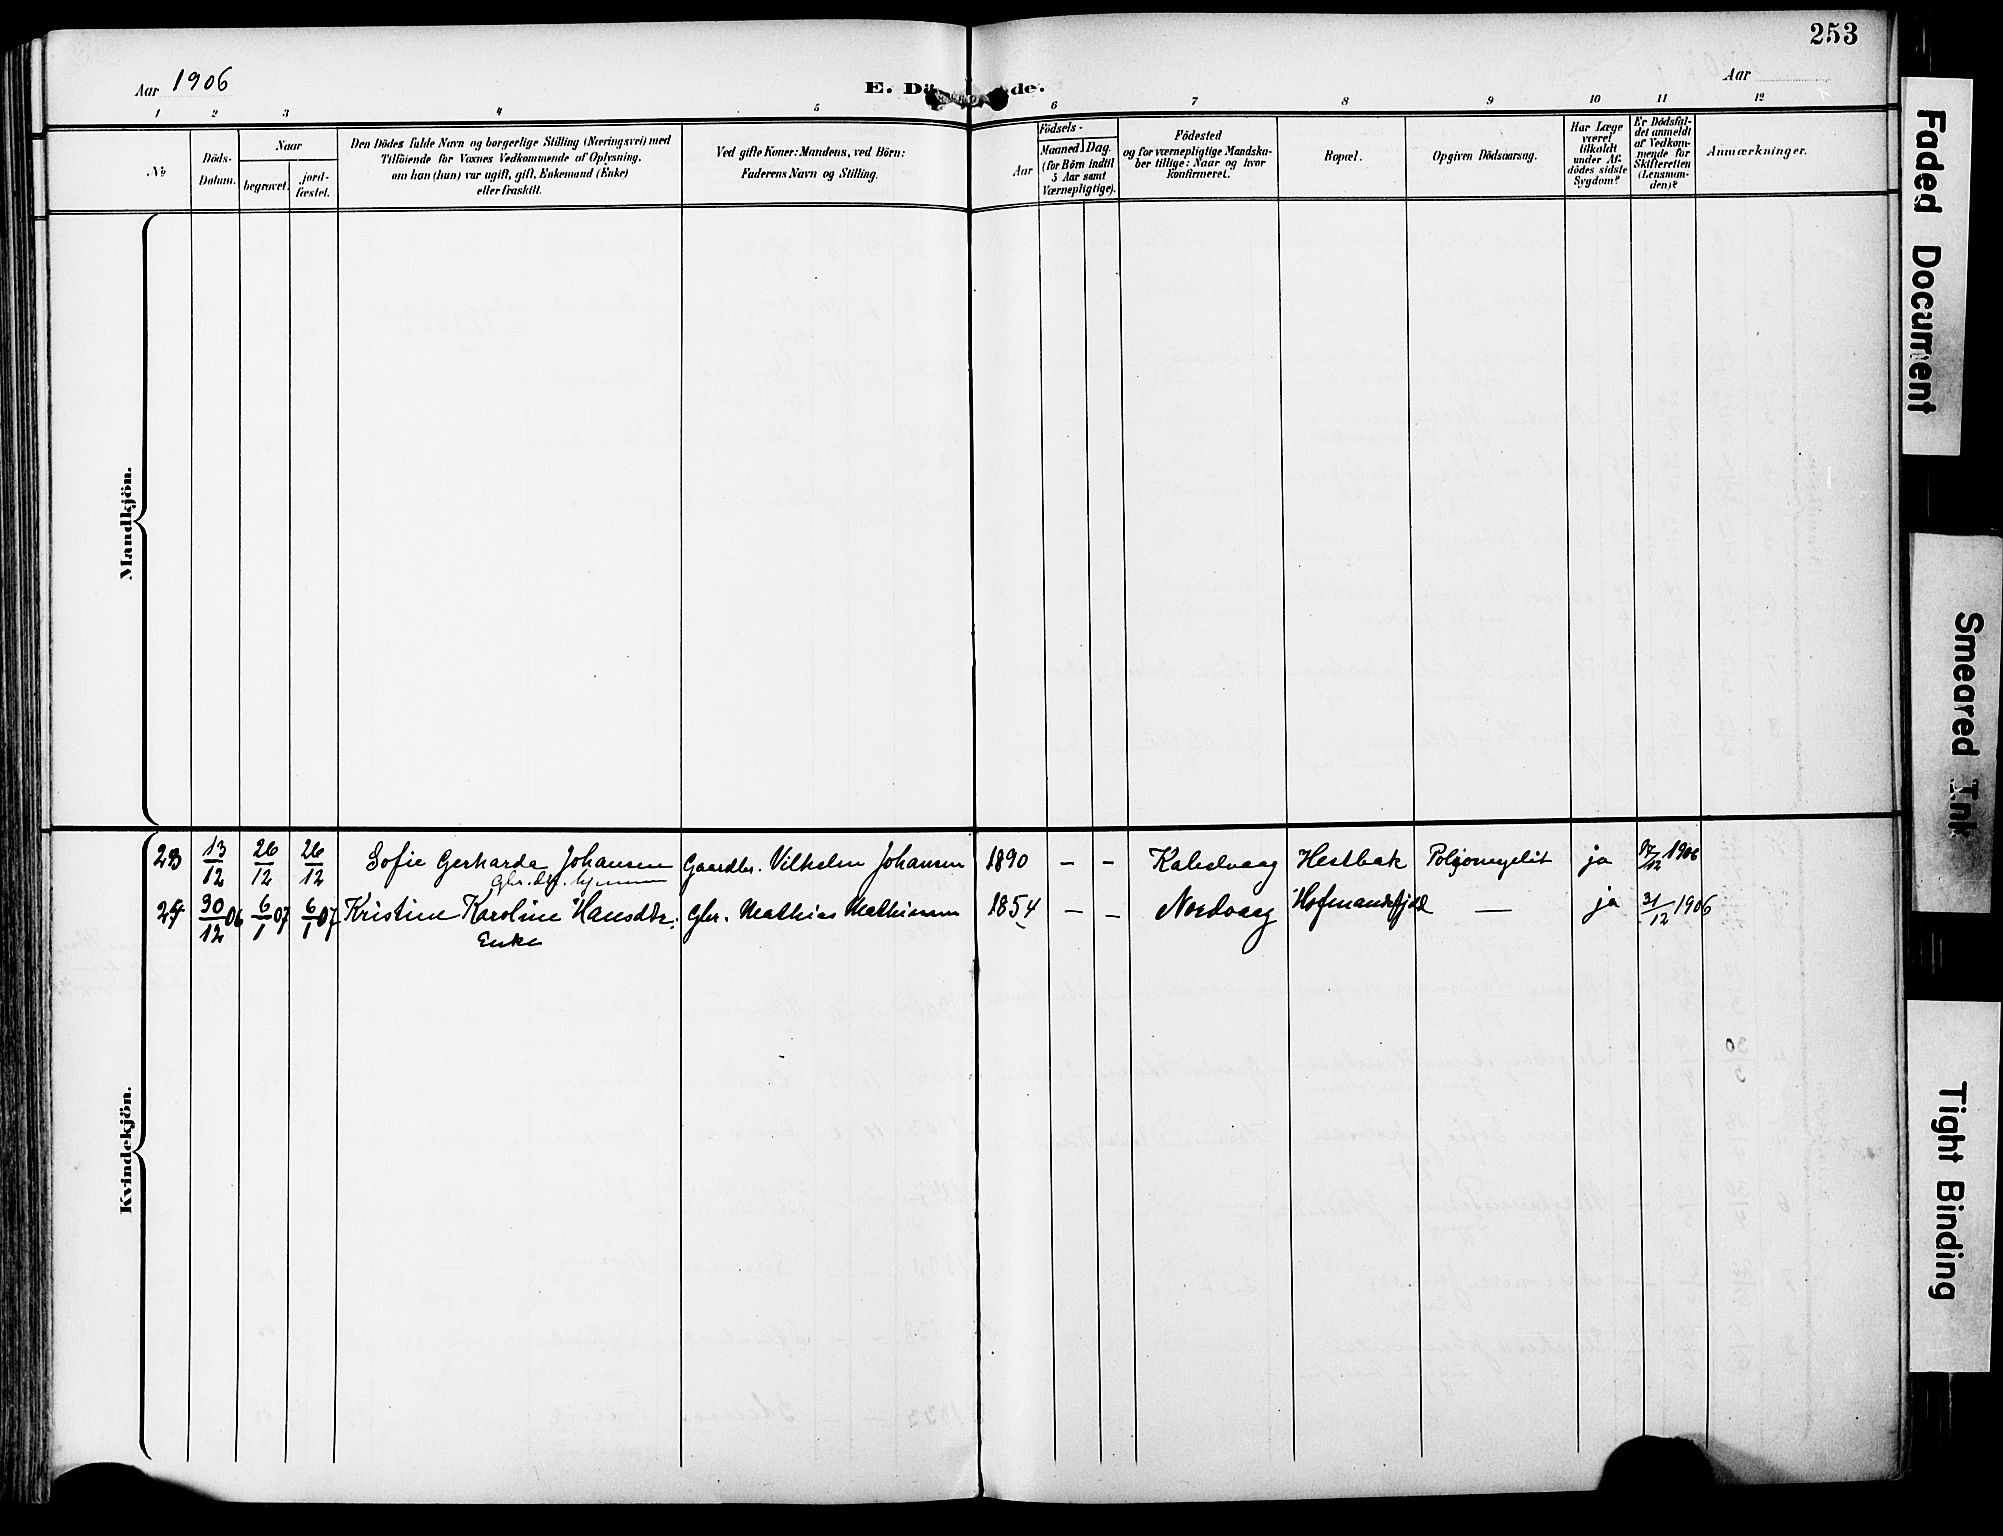 253
Aar 1906
E. Dö de.
Aar
1 2 3 4 5 6 7 8 9 10 11 12
No
Döds-
Datum.
Naar
begravet.
jord-
fæstet.
Den Dödes fulde Navn og borgerlige Stilling (Næringsvei) med
Tilföiende for Voxnes Vedkommende af Oplysning,
om han (hun) var ugift, gift, Enkemand (Enke)
eller fraskilt.
Ved gifte Koner: Mandens, ved Börn:
Faderens Navn og Stilling.
Födsels-
Aar
Maaned. Dag.
(for Börn indtil
5 Aar samt
Værnepligtige).
Födested
og for værnepligtige Mandska-
ber tillige: Naar og hvor
konfirmeret.
Bopæl.
Opgiven Dödsaarsag.
Har Læge
været
tilkaldt
under Af-
dödes sidste
Sygdom?
Er Dödsfal-
det anmeldt
af Vedkom-
mende for
Skifteretten
(Lensman-
den)?
Anmærkninger.
Mandkjön.
23 13/12 26/12 26/12 Sofie Gerharda Johansen Gaardbr. Vilhelm Johansen 1890 – – Kalvaag Hestbak ja 1906
Gbr. dtr. hjemme
24 30/12 06 6/1 07 6/1 07 Kristine Karoline Hansdtr. Gbr. Mathias Mathiassen 1854 – – Nordvaag Hofmandsfjeld — ja 31/12 1906
Enke
Kvindekjön.
Faded Document
Smeared Ink
Tight Binding